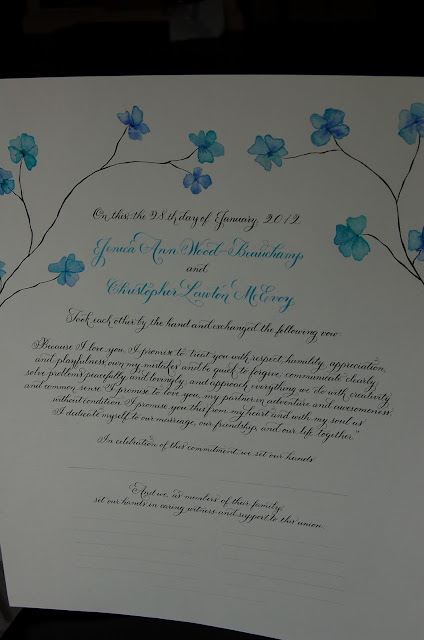 On this, the 28th day of January, 2012
Jessica Ann Wood-Beauchamp
and
Christopher Lawton McEvoy
Took each other by the hand and exchanged the following vow:
"Because I love you, I promise to treat you with respect, humility, appreciation,
and playfulness, own my mistakes and be quick to forgive, communicate clearly,
solve problems peacefully and lovingly, and approach everything we do with creativity
and common sense. I promise to love you, my partner in adventure and awesomeness
without condition. I promise you this from my heart and with my soul as
I dedicate myself to our marriage, our friendship, and our life together."
In celebration of this commitment we set our hands
And we, as members of their family,
set our hands in caring witness and support to this union.